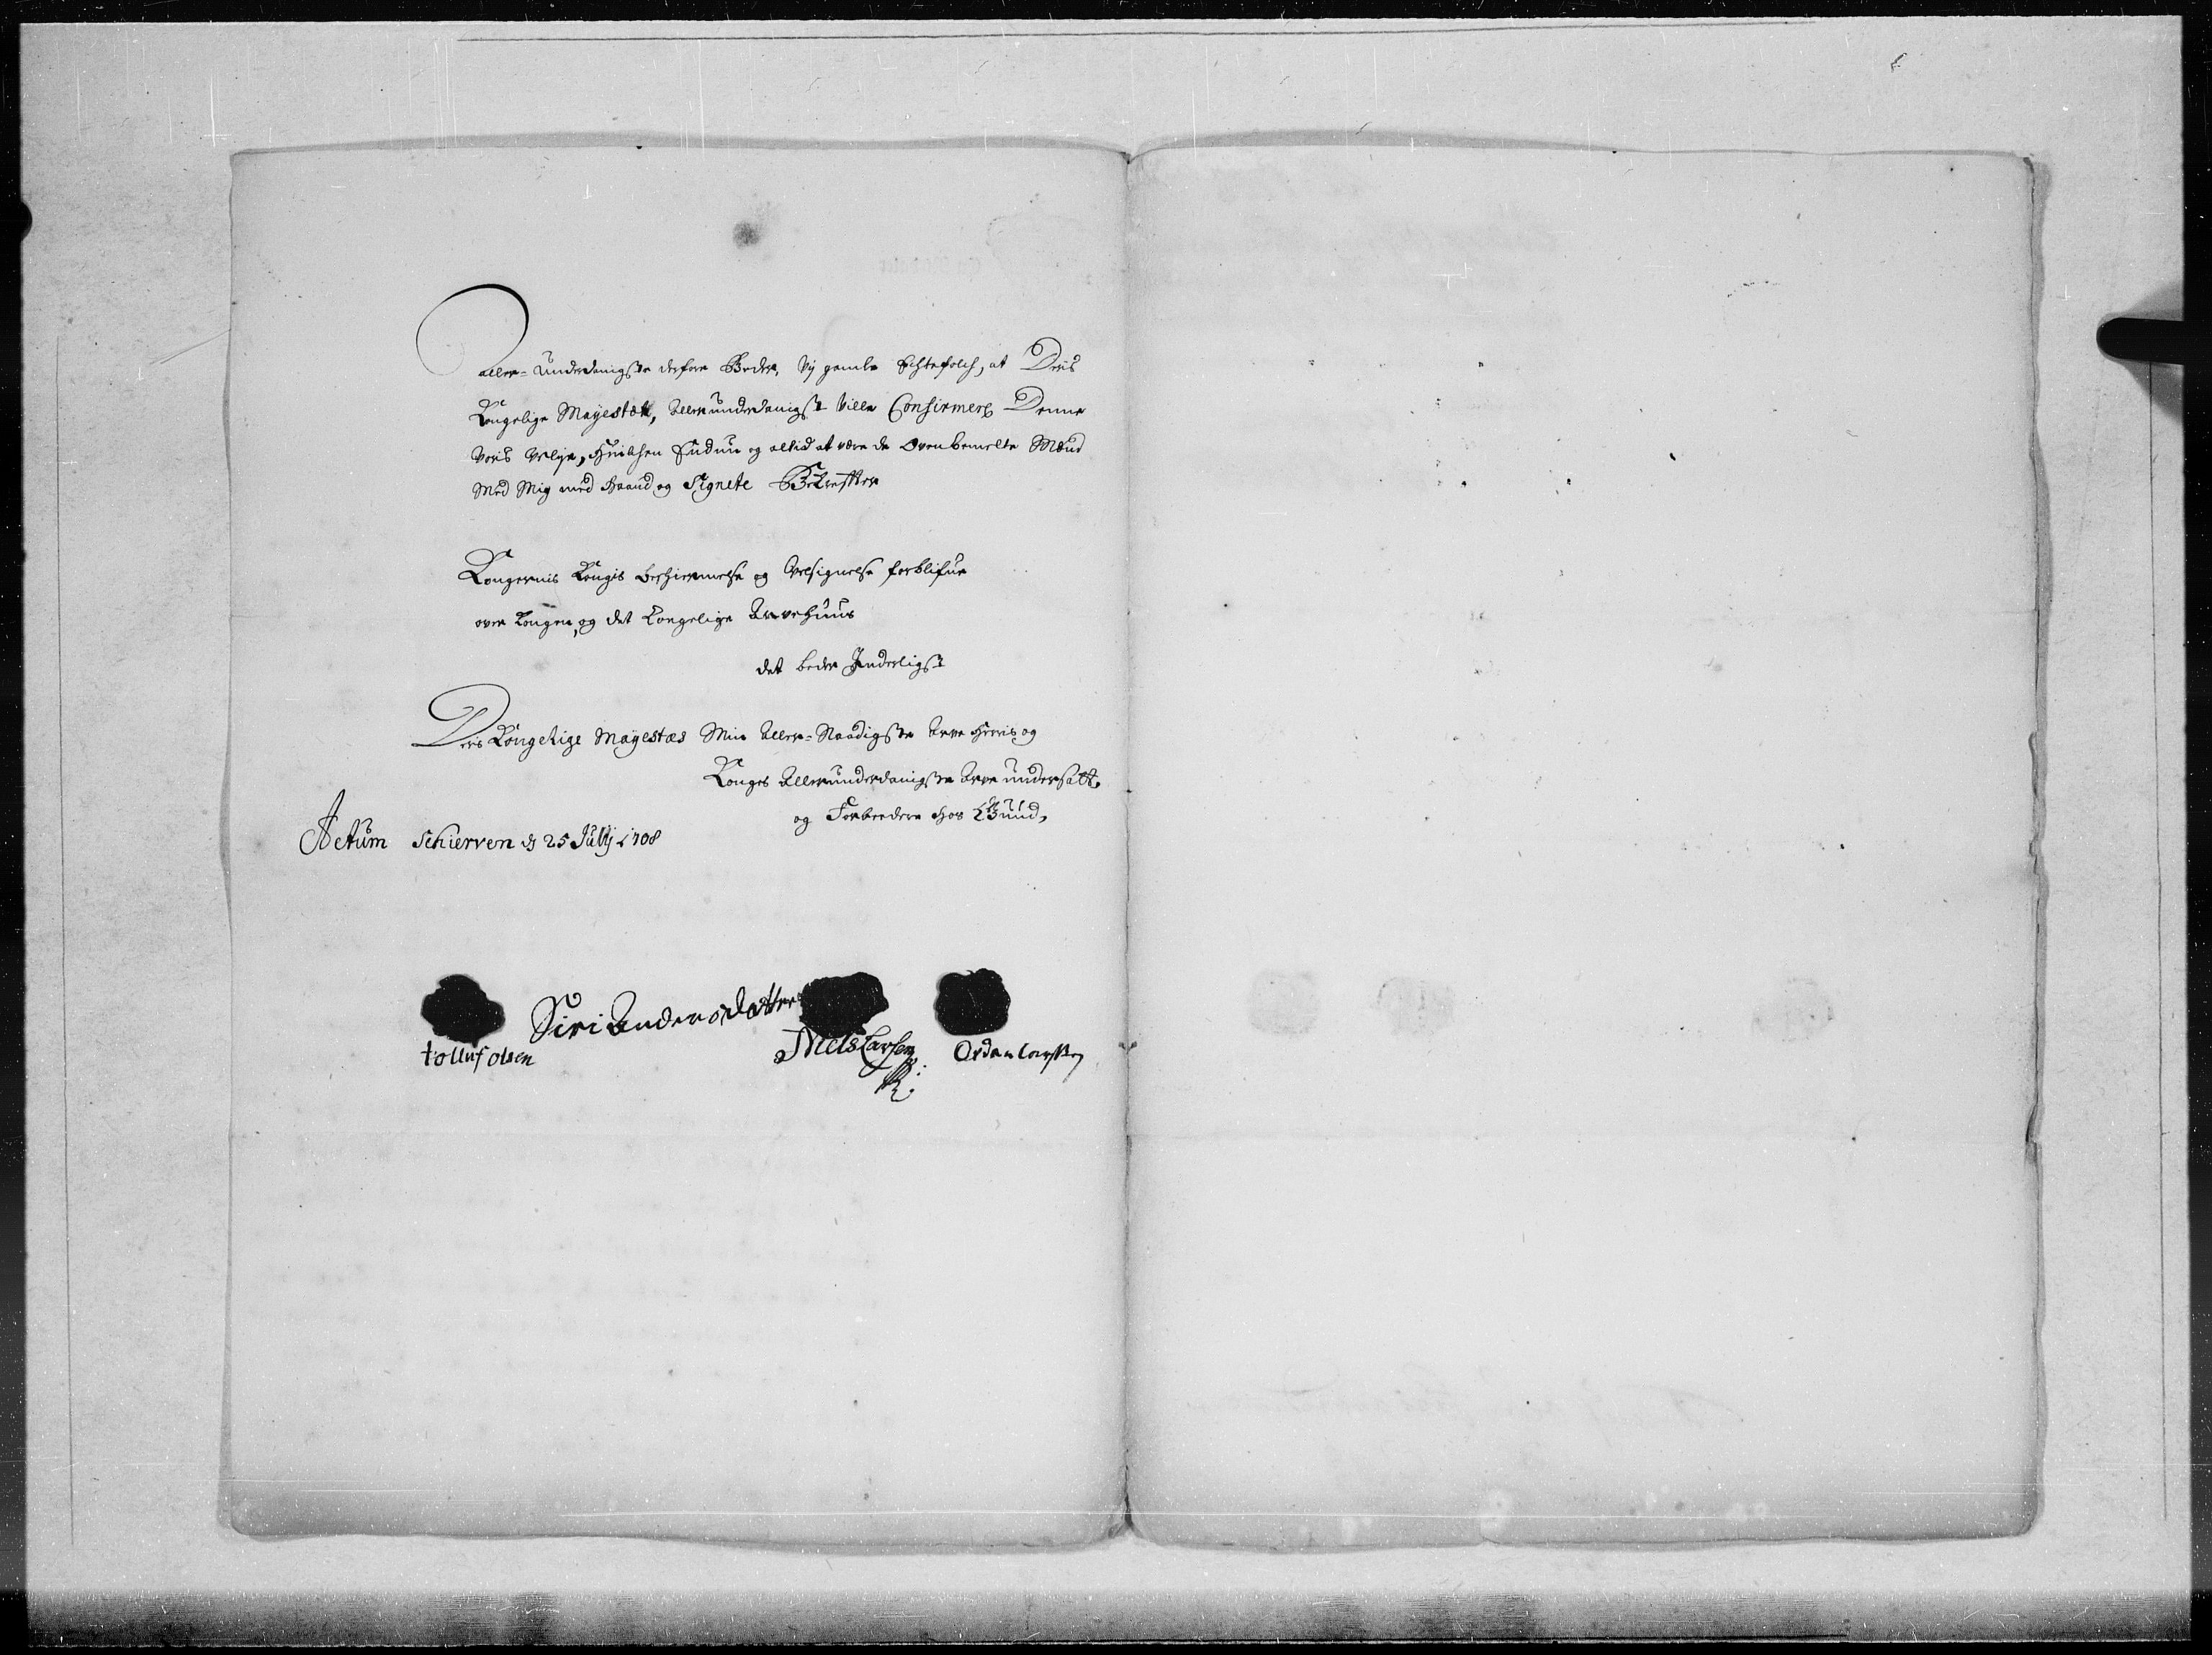 Aller-underdanigste derfore Beder, Vij gamle Echtefolch, at Deris
Kongelige Mayestæt, Allerunderdanigst Ville Confirmere Denne
Voris Vilje, Huilchen Endnu og altid at være de Ovenbemelte Mænd
Med Mig med Haand og Signete Bekreffter
Kongernis Kongis beschiermelse og Velsignelse forblifue
over Kongen, og det Kongelige Arvehuus
det beder Inderligst
Deris Kongelige Mayestæs Min Aller-Naadigste Arve Herris og
Konges Allerunderdanigste Arve undersatt
og Forbeedere hos Gud,
Actum Schierven d 25 Julij 1708
Siri Andersdatter
tolluf olsen
Niels Larsen